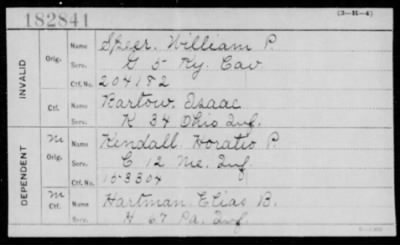 182841
(3-H-4)
INVALID
Orig. Name Speer, William P.
Serv. G 5 Ky. Cav
Ctf. No. 204182
Ctf. Name Bartow, Isaac
Serv. K 34 Ohio Inf.
DEPENDENT
M Orig. Name Kendall, Horatio P.
Serv. C 12 Me. Inf.
Ctf. No. 153304
M Ctf. Name Hartman, Elias B.
Serv. H 67 Pa. Inf.